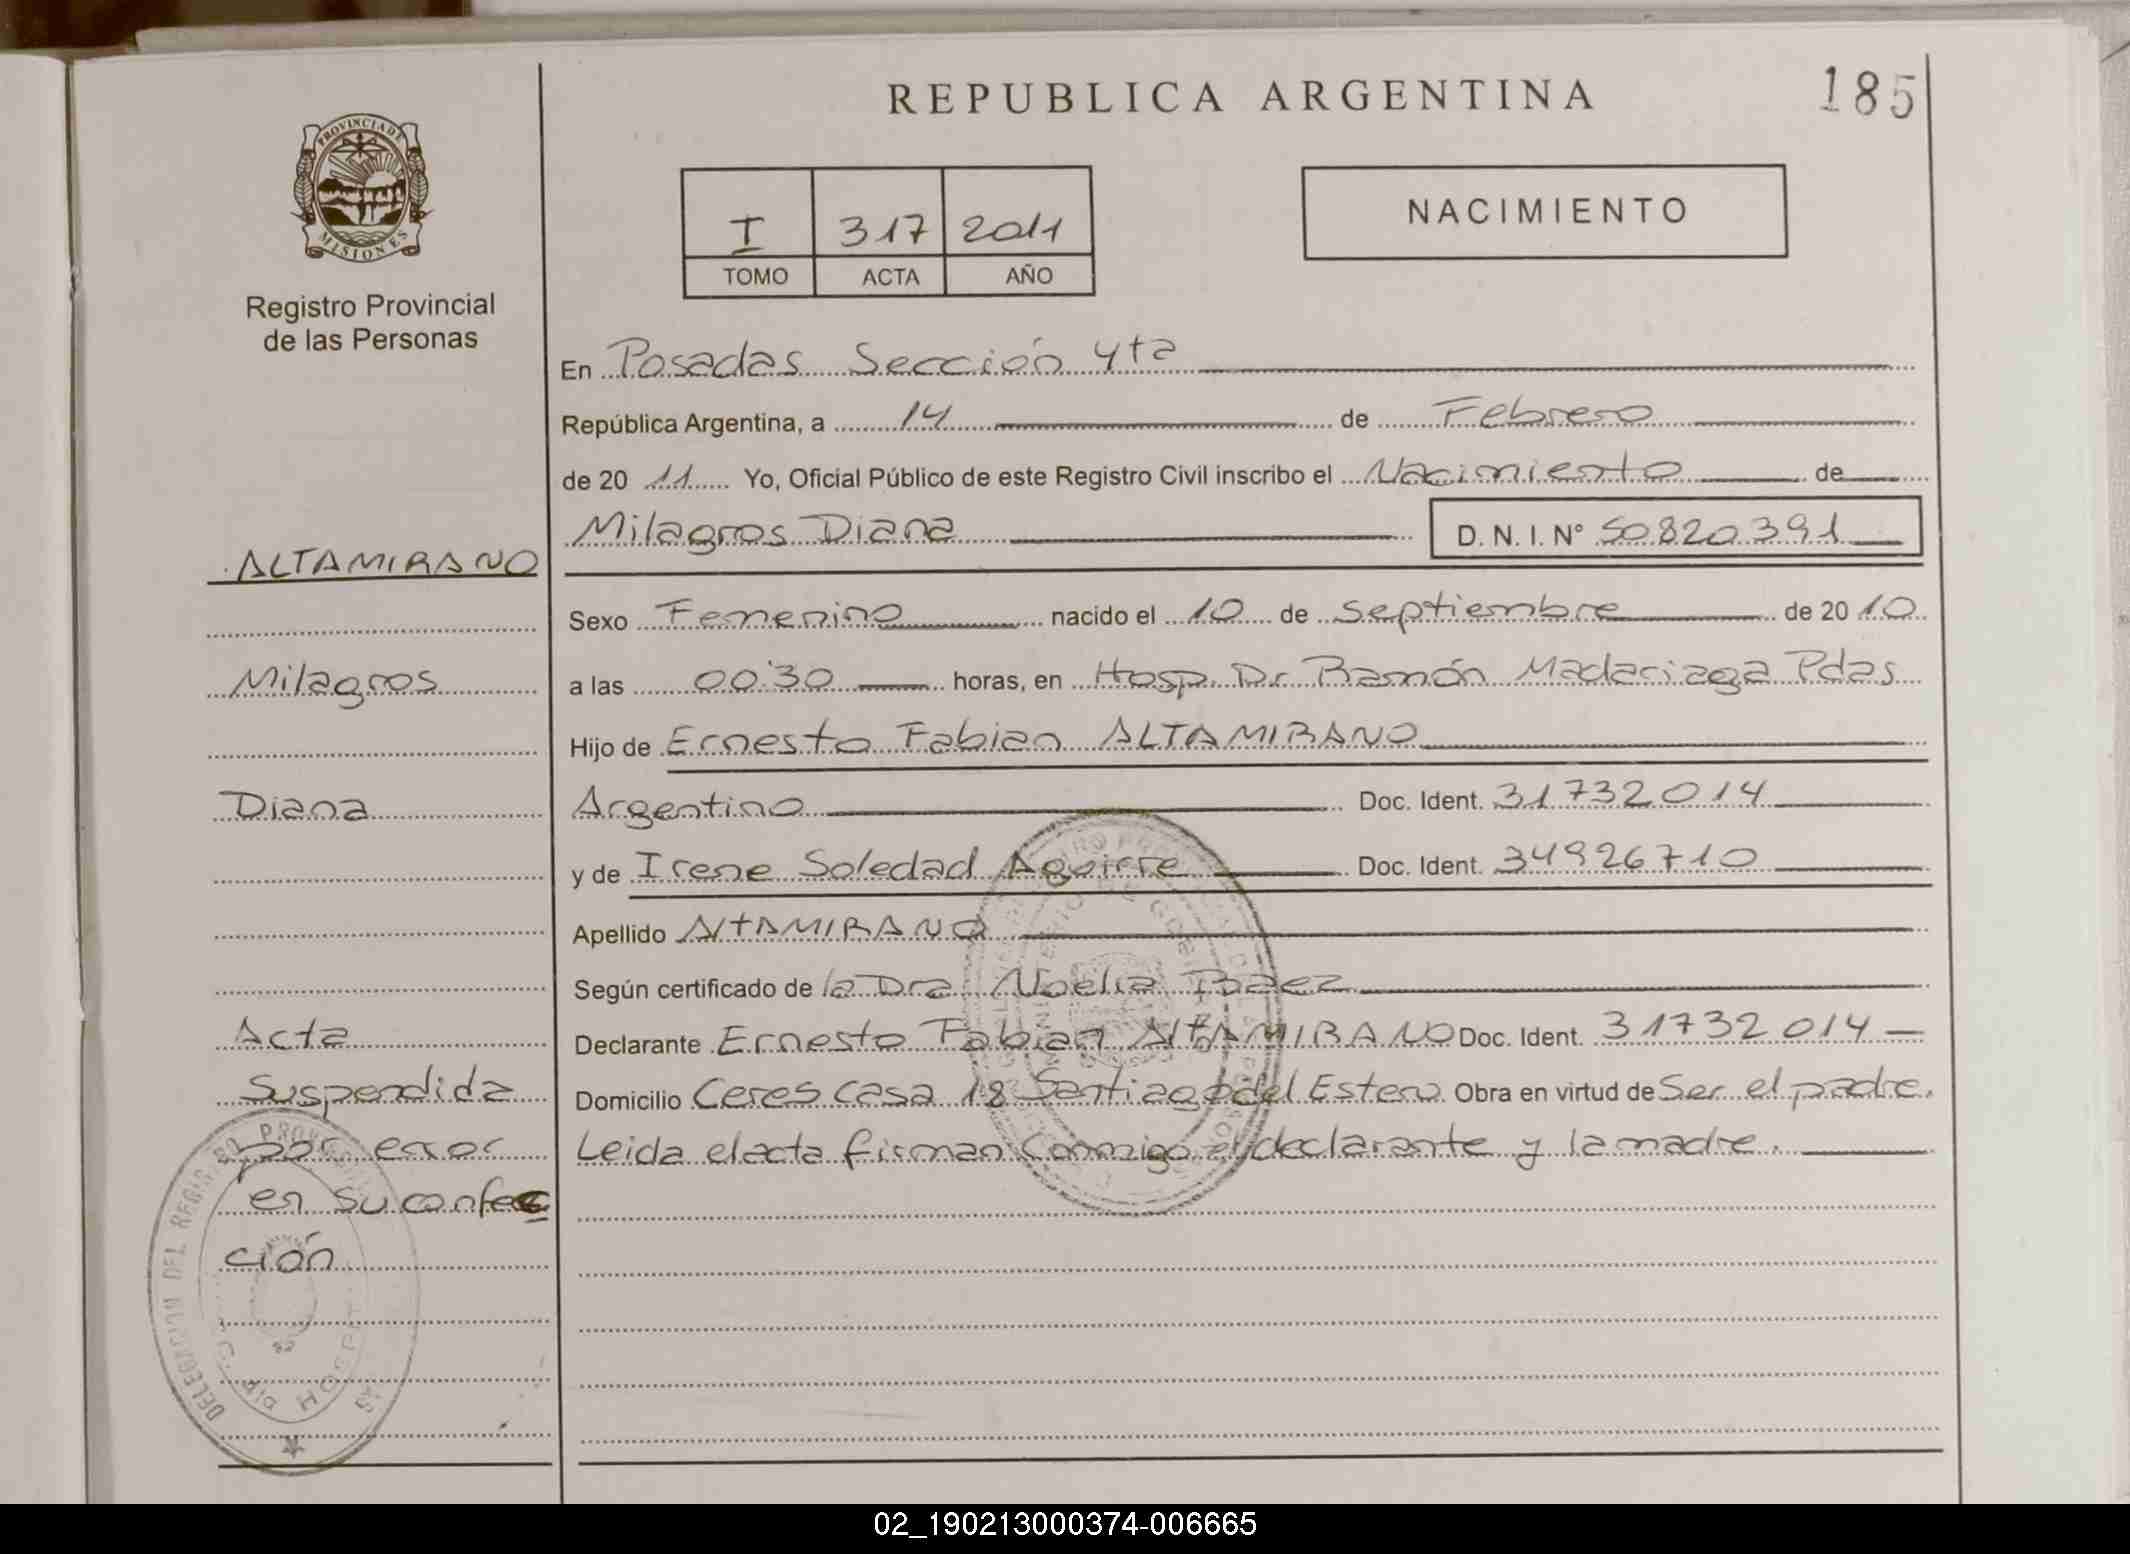 REPUBLICA ARGENTINA
185
PROVINCIA DE
MISIONES
Registro Provincial
de las Personas
I 317 2011
TOMO ACTA AÑO
NACIMIENTO
En Posadas Sección 4ta
República Argentina, a 14 de Febrero
de 20 11 Yo, Oficial Público de este Registro Civil inscribo el Nacimiento de
Milagros Diana D. N. I. Nº 50820391
Sexo Femenino nacido el 10 de Septiembre de 20 10
a las 00:30 horas, en Hosp. Dr. Ramón Madariaga Pdas
Hijo de Ernesto Fabian ALTAMIRANO
Argentino Doc. Ident. 31732014
y de Irene Soledad Aguirre Doc. Ident. 34926710
Apellido AltAMIRANO
Según certificado de la Dra. Noelia Baez
Declarante Ernesto Fabian AltAMIRANO Doc. Ident. 31732014
Domicilio Ceres Casa 18 Santiago del Estero Obra en virtud de Ser el padre.
Leida elacta firman Conmigo el declarante y la madre.
ALTAMIRANO
Milagros
Diana
Acta
Suspendida
por error
en su confec
ción
DELEGACION DEL REGISTRO PROVINCIAL
02_190213000374-006665